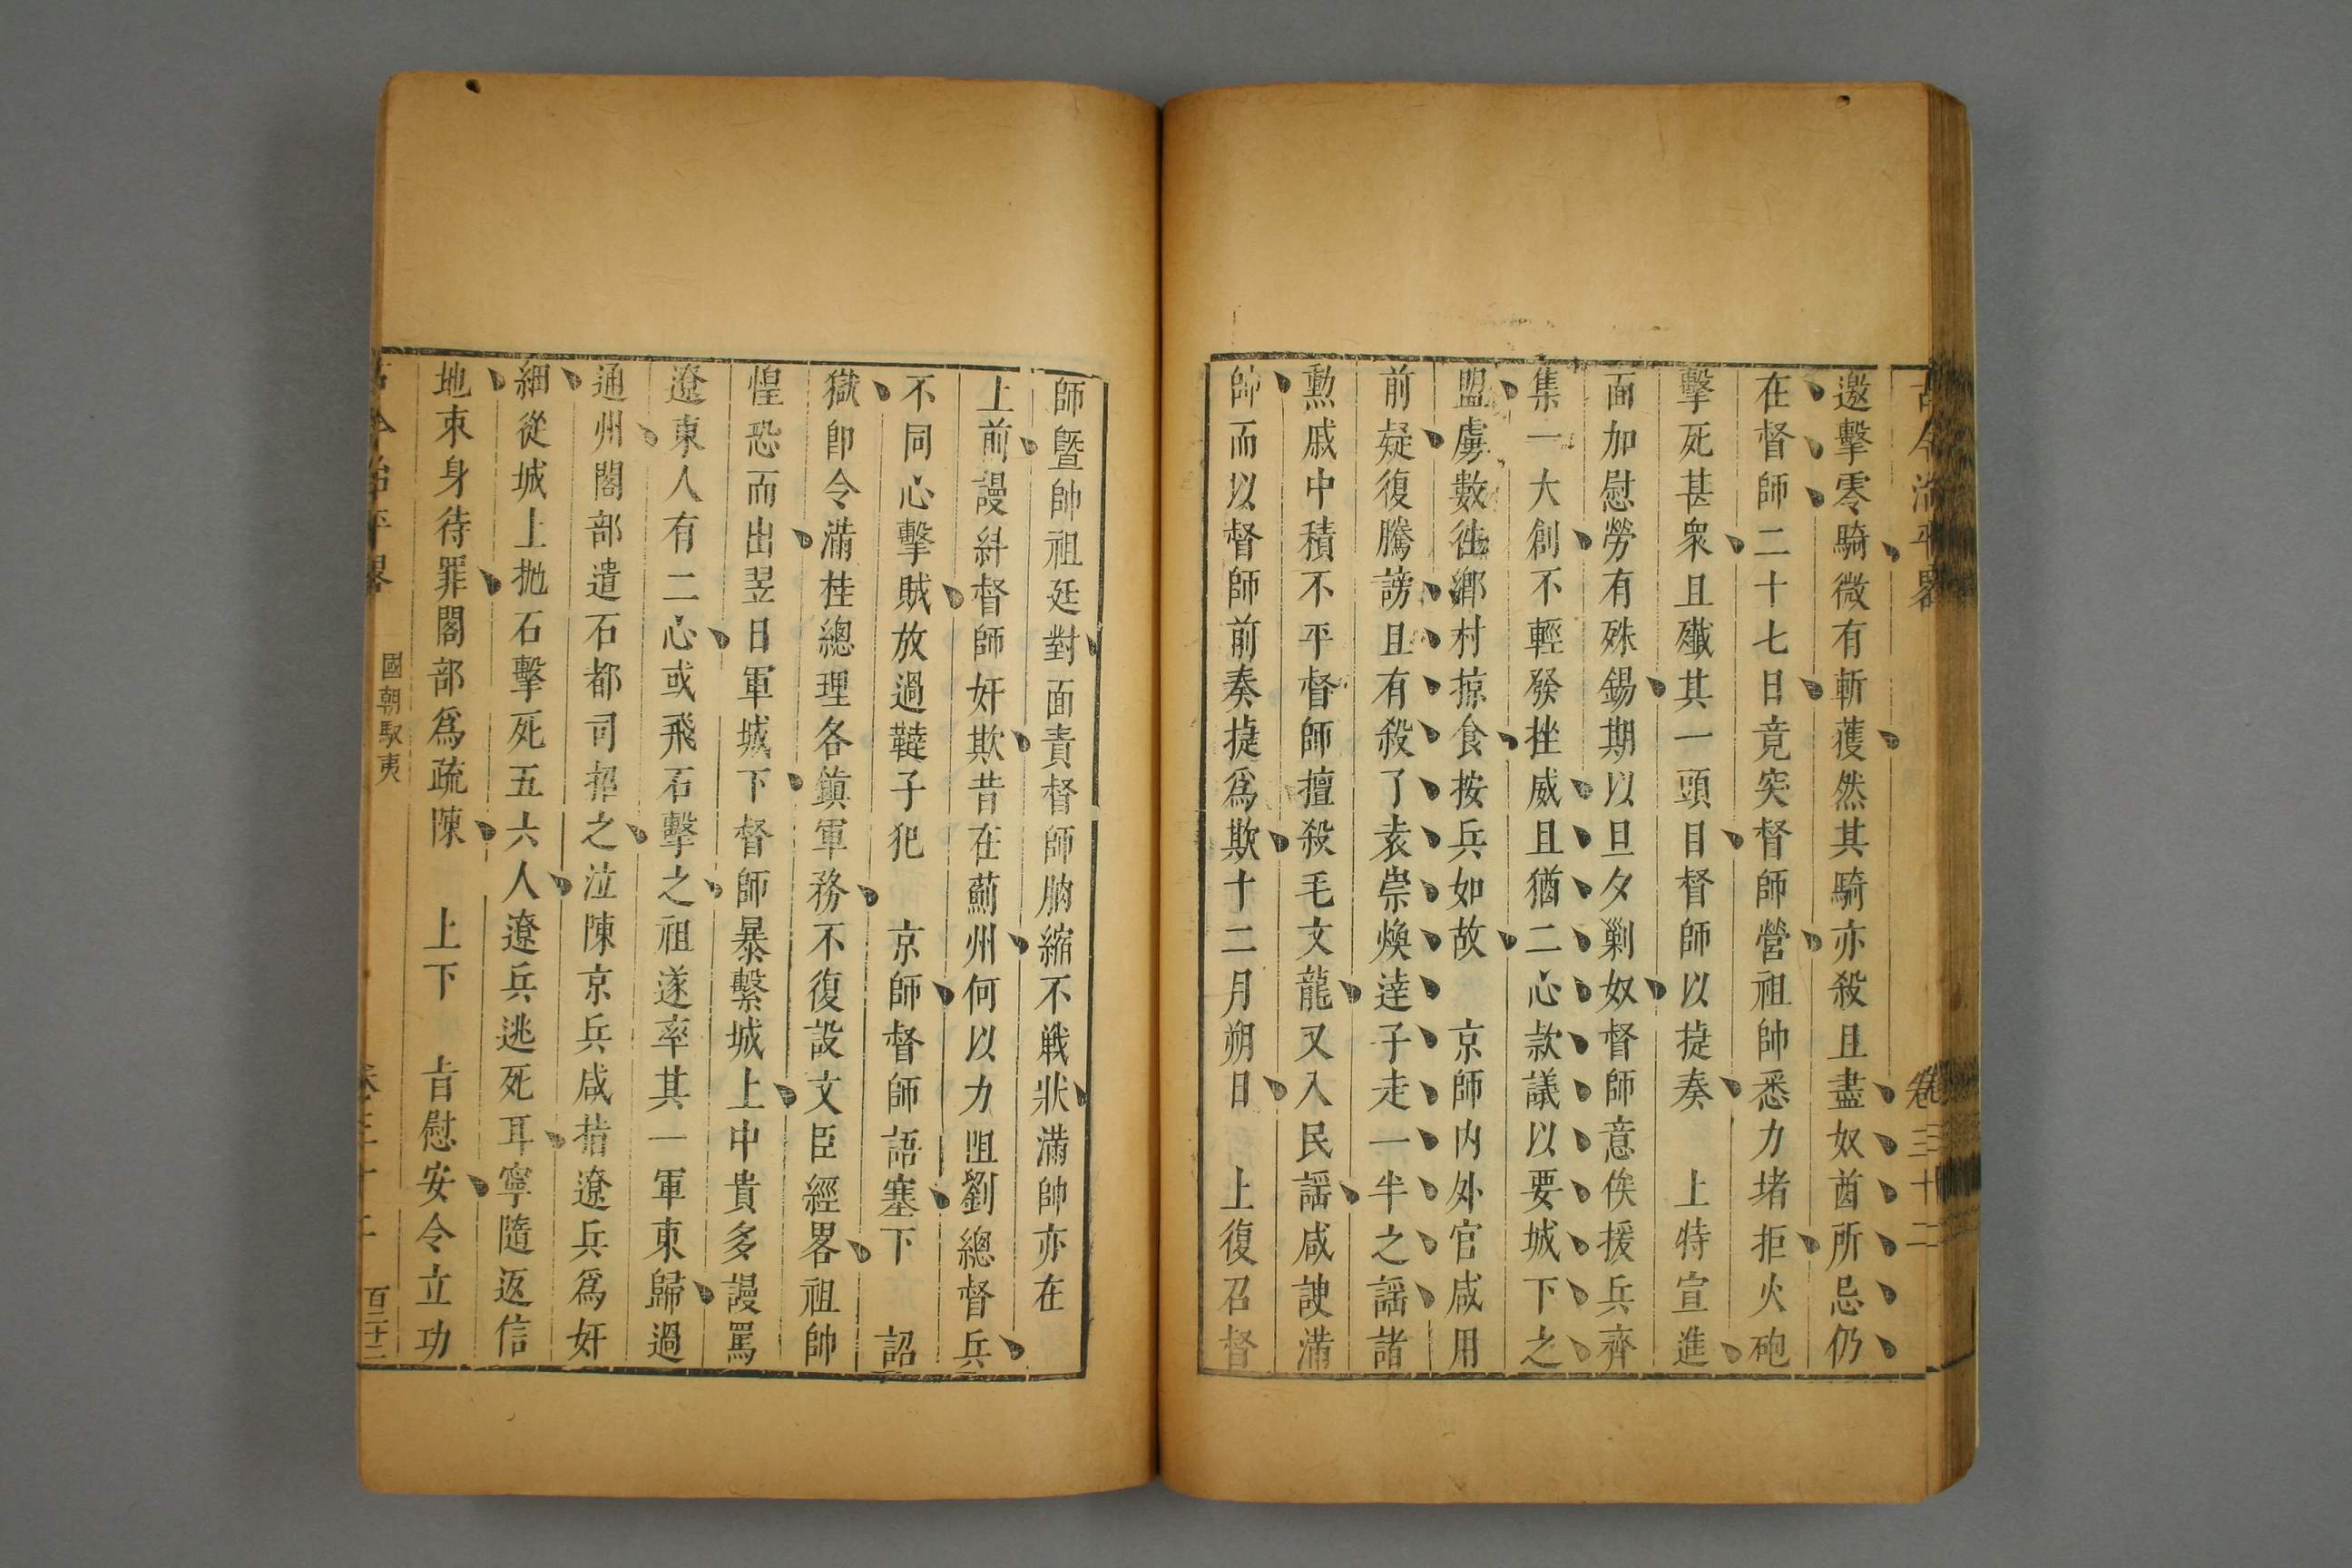 古今治平畧 卷三十二
邀擊零騎微有斬獲然其騎亦殺且盡奴酋所忌仍
在督師二十七日竟突督師營祖帥悉力堵拒火砲
擊死甚衆且殲其一頭目督師以捷奏 上特宣進
面加慰勞有殊錫期以旦夕剿奴督師意俟援兵齊
集一大創不輕發挫威且猶二心款議以要城下之
盟虜數徃鄉村掠食按兵如故 京師内外官咸用
前疑復騰謗且有殺了袁崇煥逹子走一半之謡諸
勲戚中積不平督師擅殺毛文龍又入民謡咸諛滿
帥而以督師前奏捷爲欺十二月朔日 上復召督
師曁帥祖廷對面責督師朒縮不戰狀滿帥亦在
上前謾糾督師奸欺昔在薊州何以力阻劉總督兵
不同心擊賊放過韃子犯 京師督師語塞下 詔
獄卽令滿桂總理各鎮軍務不復設文臣經畧祖帥
惶恐而出翌日軍城下督師暴繫城上中貴多謾罵
遼東人有二心或飛石擊之祖遂率其一軍東歸過
通州閣部遣石都司招之泣陳京兵咸指遼兵爲奸
細從城上抛石擊死五六人遼兵逃死耳寧隨返信
地束身待罪閣部爲疏陳 上下 旨慰安令立功
古今治平畧 國朝馭夷 卷三十二 百二十二